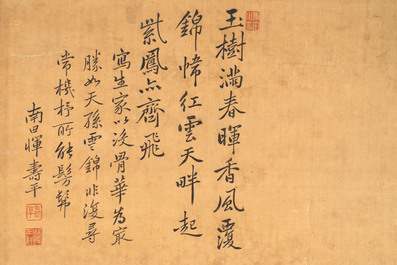 玉樹滿春暉香風覆
錦幃紅雲天畔起
紫鳳亦齊飛
寫生家以沒骨華為最
勝如天孫雲錦非復尋
常機杼所能髣髴
南田惲壽平